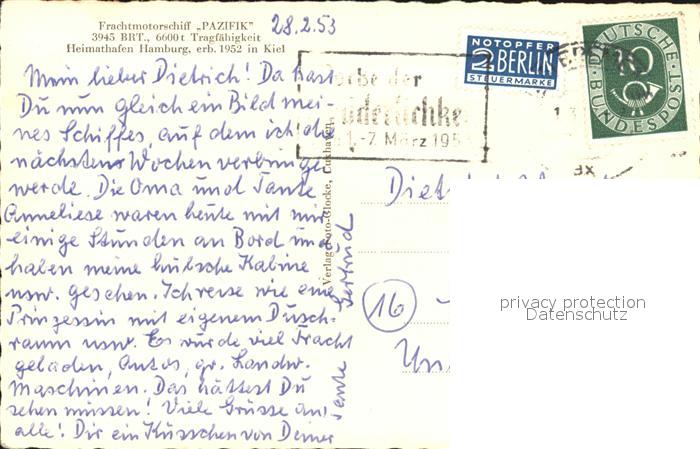 Frachtmotorschiff „PAZIFIK"
3945 BRT., 6600 t Tragfähigkeit
Heimathafen Hamburg, erb. 1952 in Kiel
28.2.53
NOTOPFER
2 BERLIN
STEUERMARKE
DEUTSCHE BUNDESPOST
10
der
1.-7. März 195
Mein lieber Dietrich! Da hast
Du nun gleich ein Bild mei-
nes Schiffes, auf dem ich die
nächsten Wochen verbringen
werde. Die Oma und Tante
Anneliese waren heute mit mir
einige Stunden an Bord und
haben meine hübsche Kabine
usw. gesehen. Ich reise wie eine
Prinzessin mit eigenem Dusch-
raum usw. Es wurde viel Fracht
geladen, Autos, gr. Landw.
Maschinen. Das hättest Du
sehen müssen! Viele Grüsse an
alle! Dir ein Küsschen von Deiner
Tante Gertrud
Verlag Foto-Glocke, Cuxhaven
16
privacy protection
Datenschutz